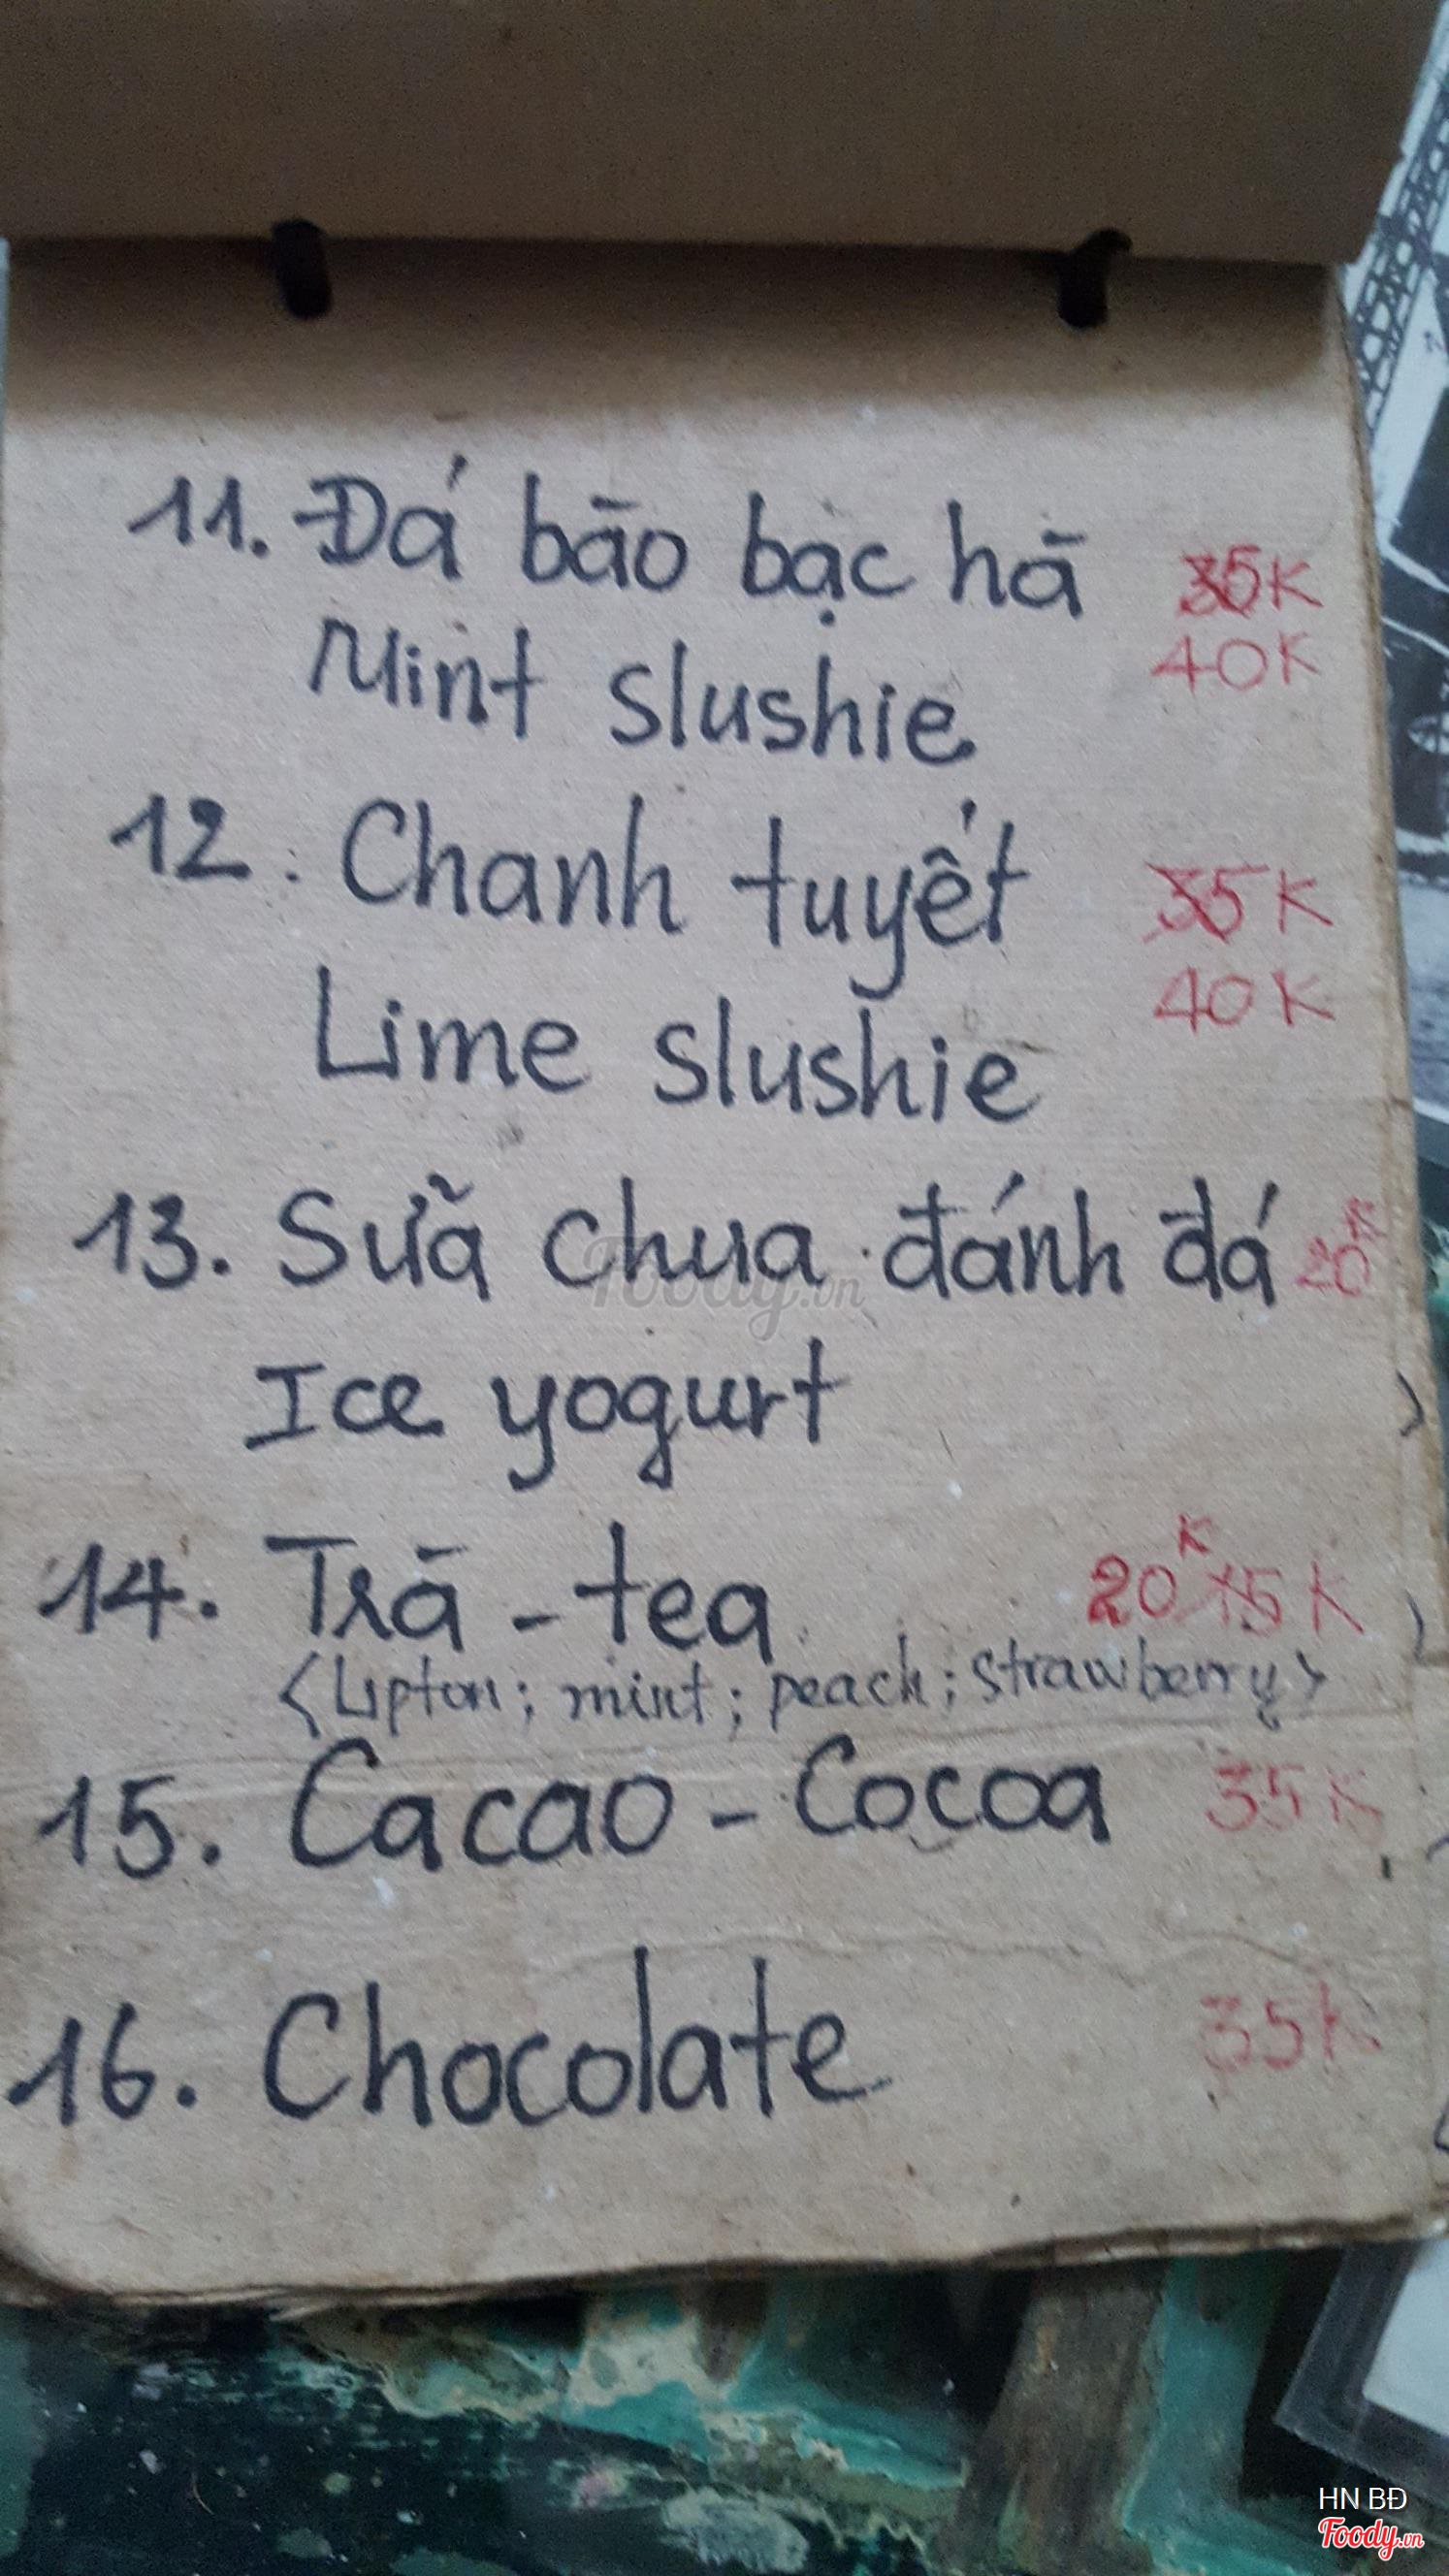 11. Đá bào bạc hà 35K
40K
Mint slushie
12. Chanh tuyết 35K
40K
Lime slushie
13. Sữa chua đánh đá 20K
Ice yogurt
14. Trà - tea 20K 15K
<Lipton; mint; peach; strawberry>
15. Cacao - Cocoa 35K
16. Chocolate 35K
Foody.vn
HN BĐ
Foody.vn